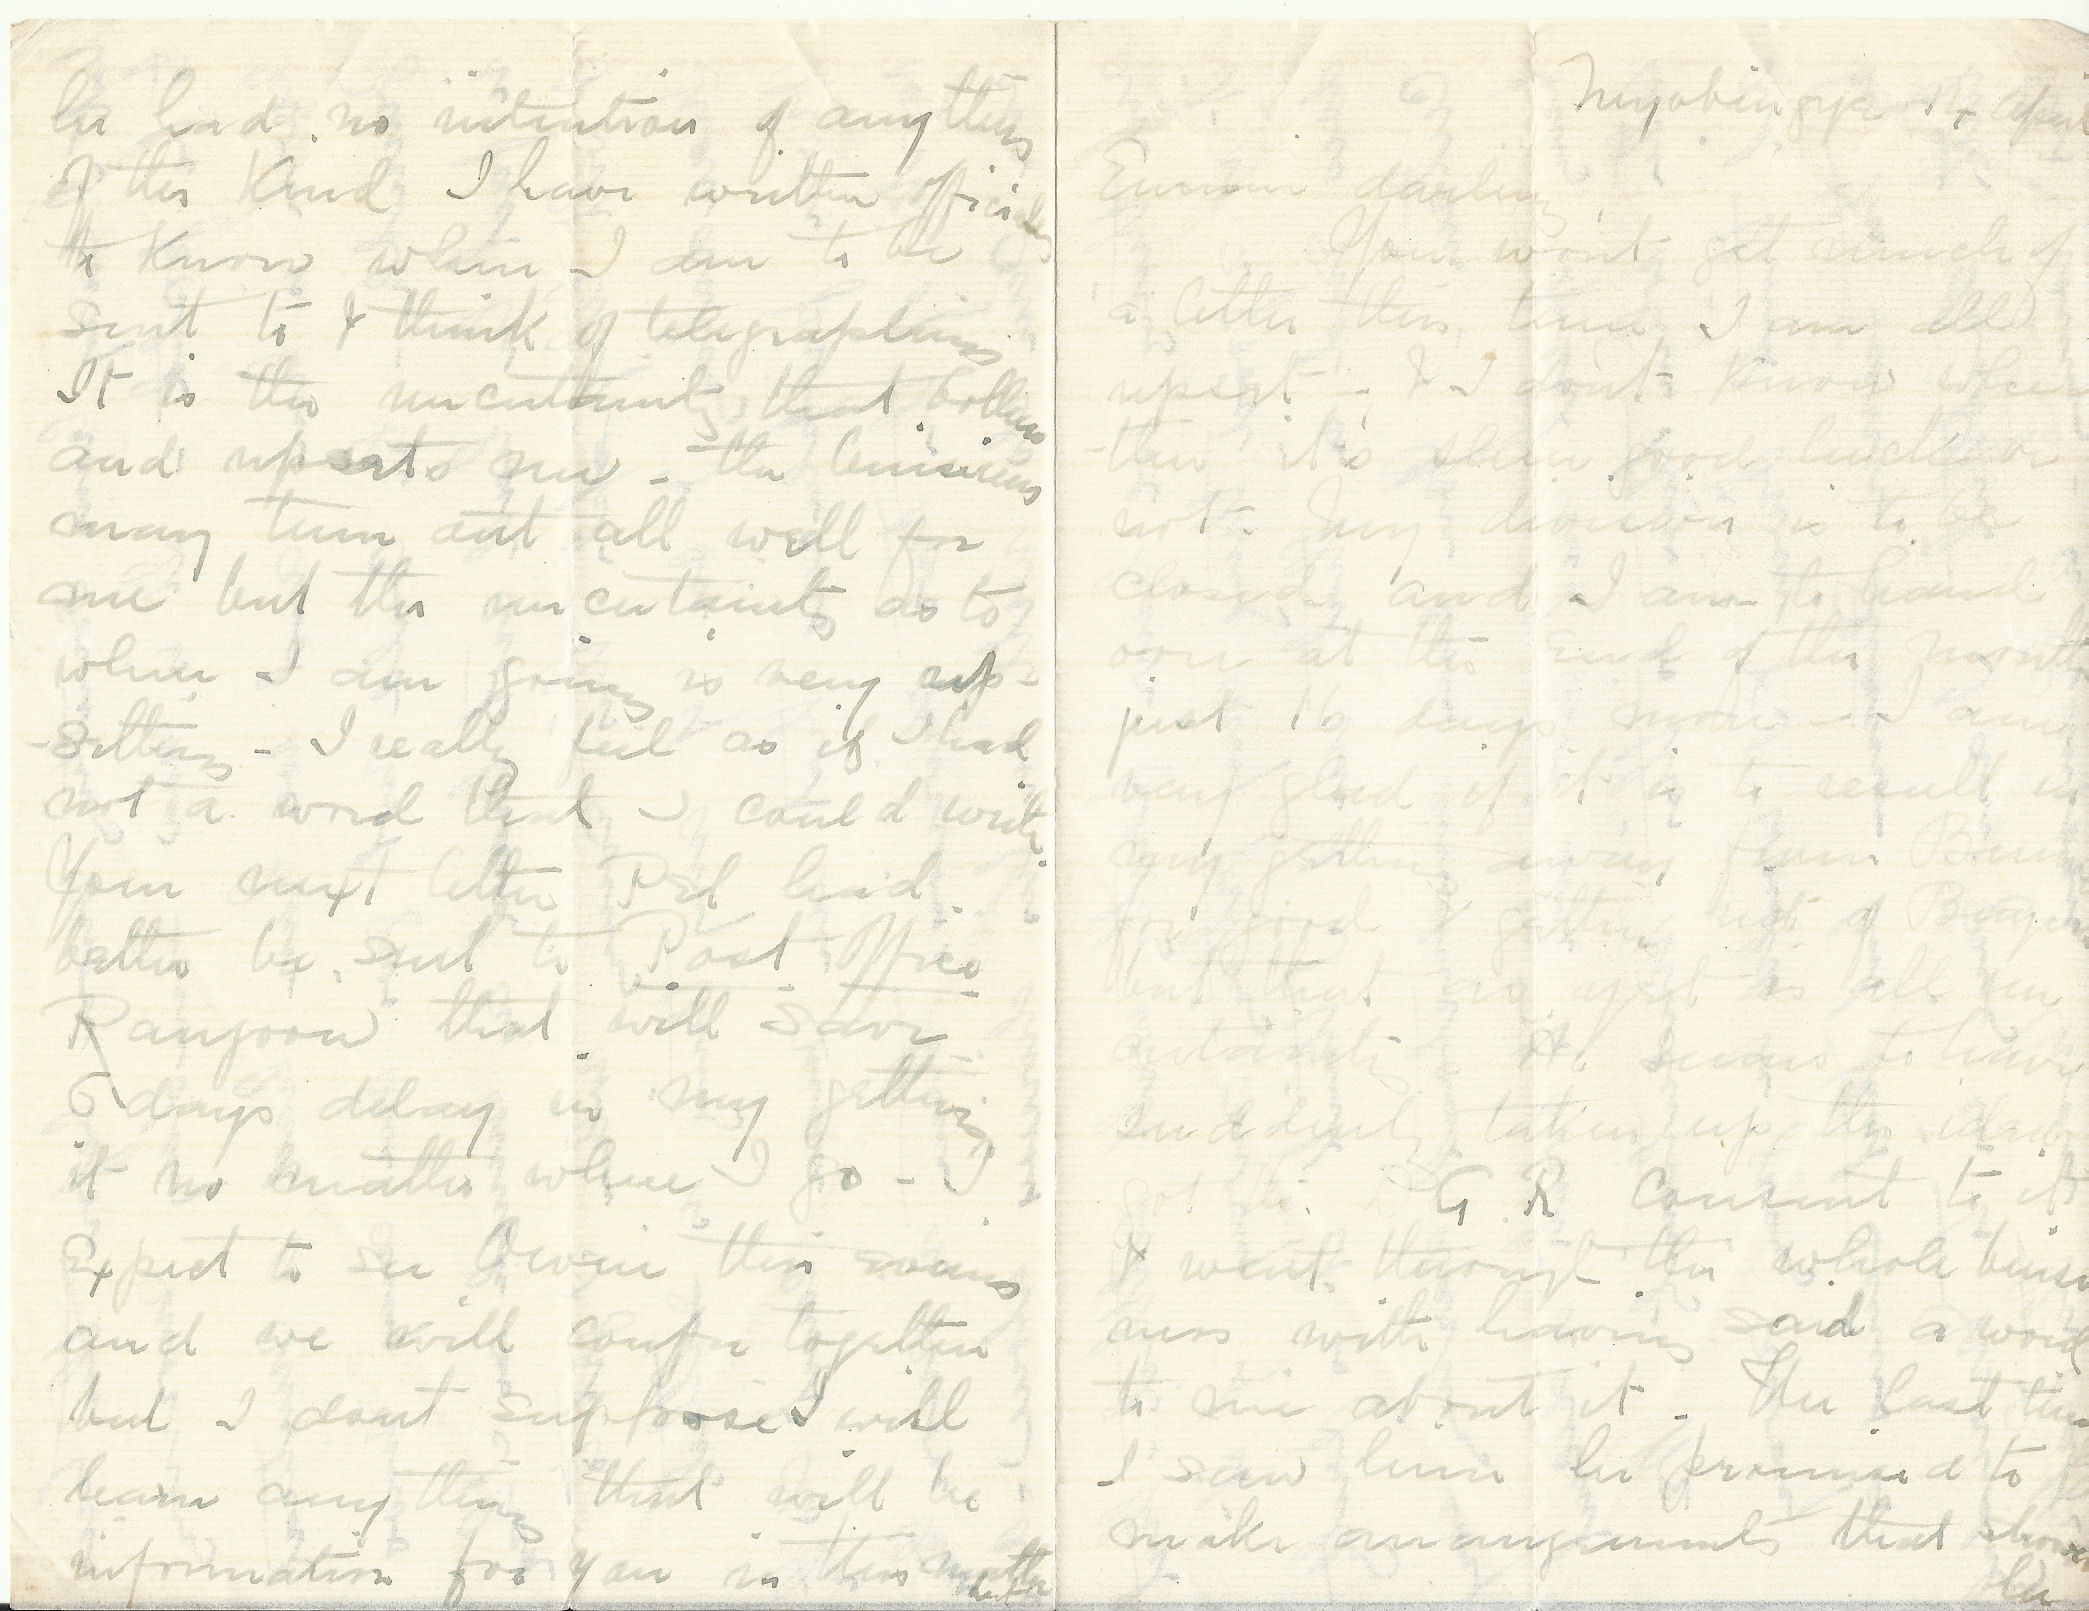 Nyobingya 14 April
Emmie darling,
Your wont get much of
a letter this time I am all
upset - & I dont know whe
ther it's sheer good luck or
not - My division is to be
closed and I am to hand
over at the end of the month
just 16 days more - I am
very glad if it is to result in
my getting away from Burma
for good & getting rid of
but that as yet is all un
certainty. He seems to have
suddenly taken up the idea
got the D G R consent to it
& went through the whole busi
ness with having said a word
to me about it - The last time
I saw him he promised to
make arrangements that
he
he had no intention of anything
of the kind I have written officially
to know where I am to be
sent to & think of telegraphing
It is the uncertainty that bothers
and upsets me - the business
may turn out all well for
me but the uncertainty as to
where I am going is very up-
-setting - I really feel as if I had
not a word that I could write
Your next letter Pet had
better be sent to Post Office
Rangoon that will save
6 days delay in my getting
it no matter where I go - I
expect to see Owen this evening
and we will confer together
but I dont suppose I will
learn anything that will be
information for you in this matter